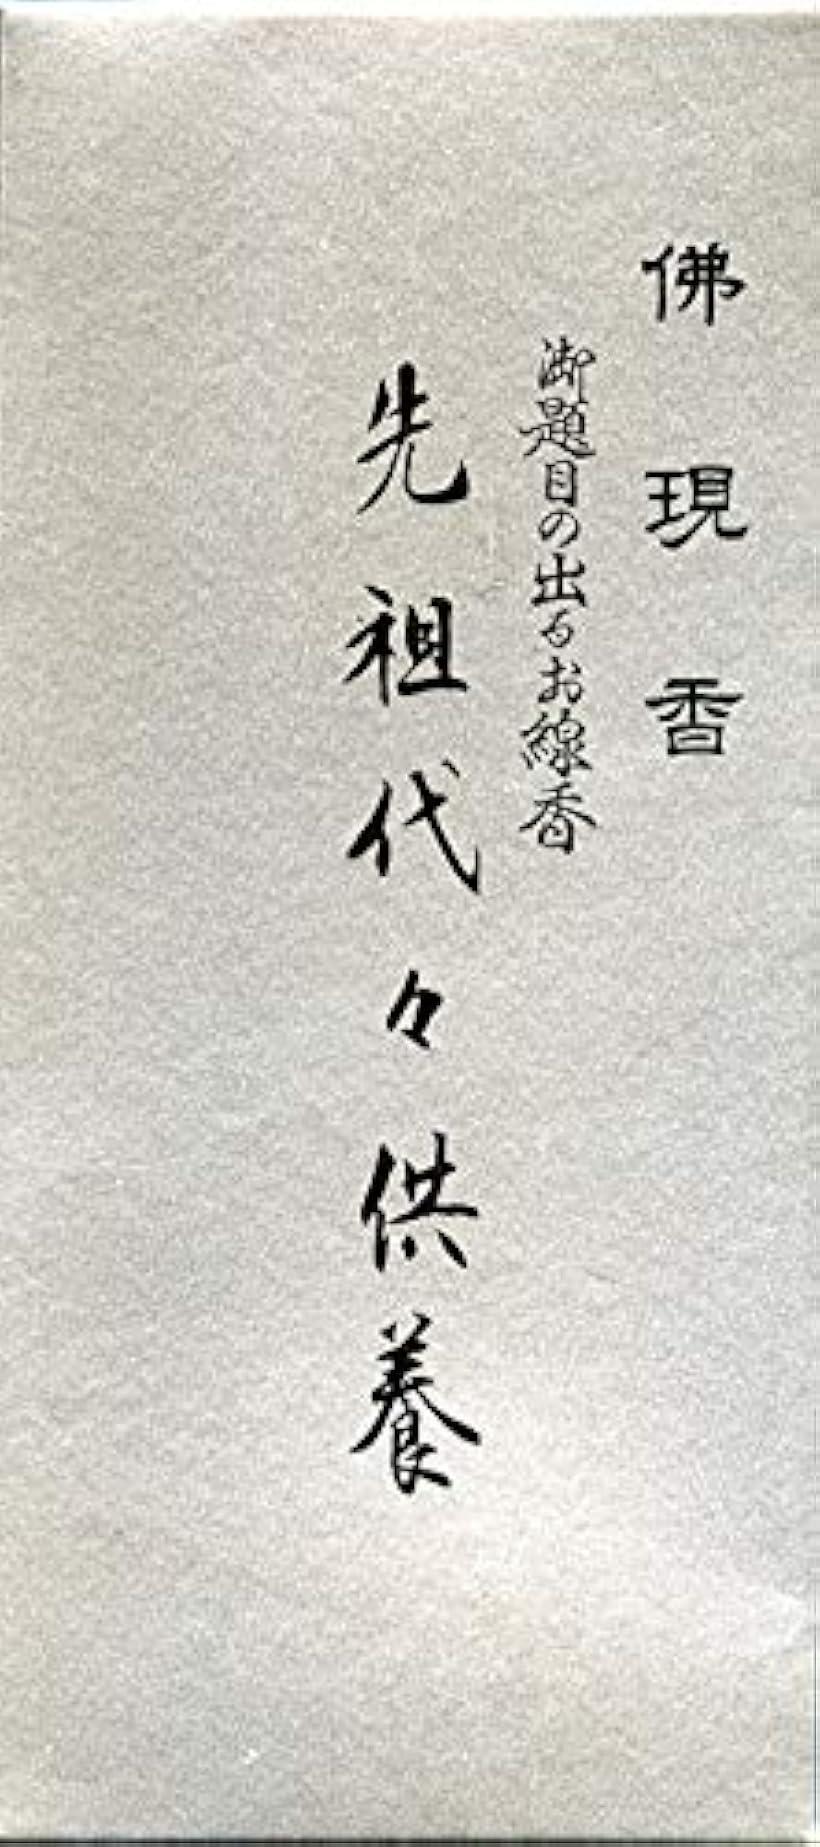 佛現香
御題目の出るお線香
先祖代々供養